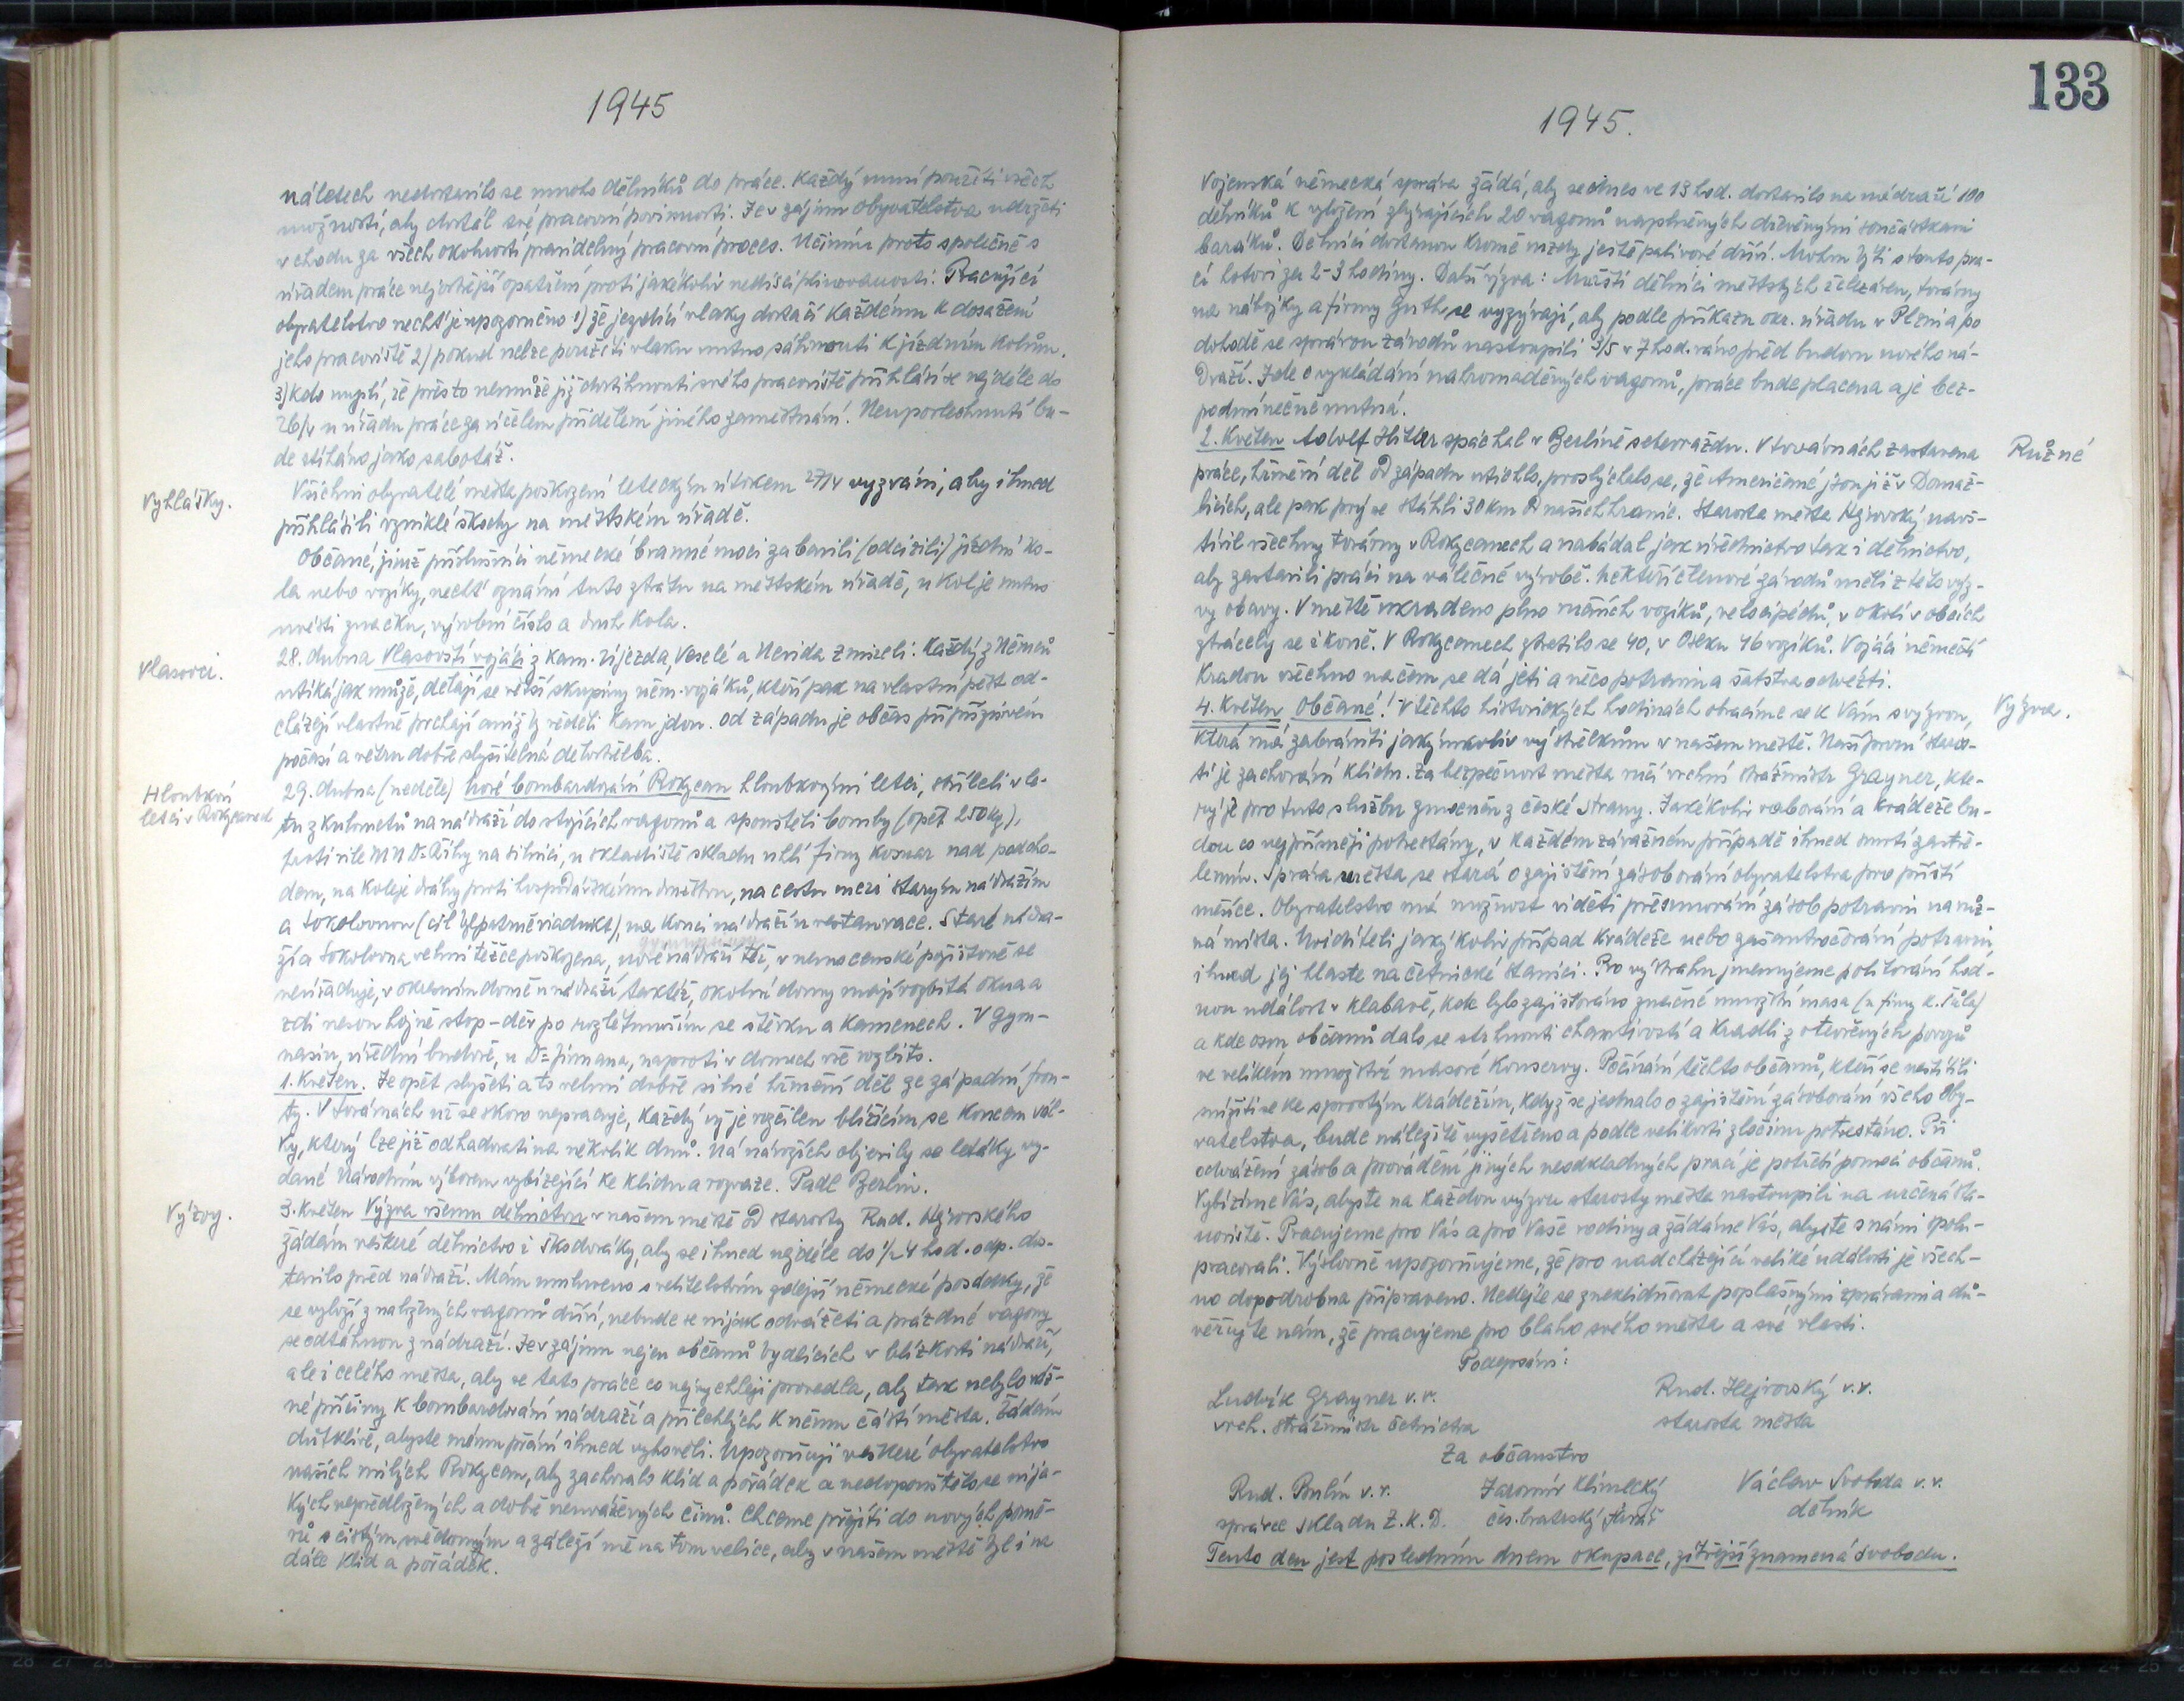 1945
náletech nedostavilo se mnoho dělníků do práce. Každý musí použíti všech
možností, aby dostál své pracovní povinnosti. Je v zájmu obyvatelstva udržeti
v chodu za všech okolností pravidelný pracovní proces. Učiním proto společně s
úřadem práce nejostřejší opatření proti jakékoliv nedisciplinovanosti. Pracující
obyvatelstvo nechť je upozorněno 1) že jezdící vlaky dostačí každému k dosažení
jeho pracoviště 2) pokud nelze použíti vlaku nutno sáhnouti k jízdním kolům.
3) kdo myslí, že přesto nemůže již dostihnouti svého pracoviště přihlásí se nejdéle do
26/4 u úřadu práce za účelem přidělení jiného zaměstnání. Neuposlechnutí bu-
de stíháno jako sabotáž.
Vyhlášky.
Všichni obyvatelé města poškození leteckým útokem 27/4 vyzváni, aby ihned
přihlásili vzniklé škody na městském úřadě.
Občané, jimž příslušníci německé branné moci zabavili (odcizili) jízdní ko-
la nebo vozíky, nechť oznámí tuto ztrátu na městském úřadě, u kol je nutno
uvésti značku, výrobní číslo a druh kola.
Vlasovci.
28. dubna Vlasovští vojáci z Kam. Újezda, Veselé a Nevida zmizeli. Každý z Němců
utíká jak může, dělají se větší skupiny něm. vojáků, kteří pak na vlastní pěst od-
cházejí vlastně prchají aniž by věděli kam jdou. Od západu je občas při příznivém
počasí a větru dobře slyšitelná dělostřelba.
Hloubkoví
letci v Rokycanech
29. dubna (neděle) nové bombardování Rokycan hloubkovými letci, stříleli v le-
tu z kulometů na nádraží do stojících vagonů a spouštěli bomby (opět 250 kg),
proti vile MUDr. Říhy na silnici, u skladiště skladu uhlí firmy Kosnar nad podcho-
dem, na koleje dráhy proti hospodářskému družstvu, na cestu mezi starým nádražím
a sokolovnou (cíl byl patrně viadukt), na konci nádraží u restaurace. Staré nádra-
ží a sokolovna velmi těžce poškozena, nové nádraží též, v nemocenské pojišťovně se
neúřaduje, v okresním domě u nádraží taktéž, okolní domy mají rozbitá okna a
zdi nesou hojně stop-děr po rozlétnuvším se štěrku a kamenech. V gym-
nasiu, úřední budově, u Dr. Jirmana, naproti v domech vše rozbito.
1. květen. Je opět slyšeti a to velmi dobře silné hřmění děl ze západní fron-
ty. V továrnách už se skoro nepracuje, každý výš je rozčilen blížícím se koncem vál-
ky, který lze již odhadovati na několik dnů. Na nárožích objevily se letáky vy-
dané Národním výborem vybízející ke klidu a rozvaze. Padl Berlin.
Výzvy.
3. květen Výzva všemu dělnictvu v našem městě od starosty Rud. Hejrovského
žádám veškeré dělnictvo i Škodováky, aby se ihned nejdéle do 1/2 4 hod. odp. dos-
tavilo před nádraží. Mám umluveno s velitelstvím zdejší německé posádky, že
se vyloží z naložených vagonů dříví, nebude se nijak odvážeti a prázdné vagony
se odtáhnou z nádraží. Je v zájmu nejen občanů bydlících v blízkosti nádraží,
ale i celého města, aby se tato práce co nejrychleji provedla, aby tak nebylo váž-
né příčiny k bombardování nádraží a přilehlých k němu částí města. Žádám
důtklivě, abyste mému přání ihned vyhověli. Upozorňuji veškeré obyvatelstvo
našich milých Rokycan, aby zachovalo klid a pořádek a nedopouštělo se nija-
kých nepředložených a dobře neuvážených činů. Chceme přejíti do nových pomě-
rů s čistým svědomým a záleží mě na tom velice, aby v našem městě byl i na
dále klid a pořádek.
133
1945.
Vojenská německá správa žádá, aby se dnes ve 13 hod. dostavilo na nádraží 100
dělníků k vyložení zbývajících 20 vagonů naplněných dřevěnými součástkami
baráků. Dělníci dostanou kromě mzdy ještě palivové dříví. Mohou býti s touto pra-
cí hotovi za 2-3 hodiny. Další výzva: Mužští dělníci městských železáren, továrny
na nábojky a firmy Guth se vyzývají, aby podle příkazu okr. úřadu v Plzni a po
dohodě se správou závodů nastoupili 3/5 v 7 hod. ráno před budovu nového ná-
draží. Jde o vykládání nahromaděných vagonů, práce bude placena a je bez-
podmínečně nutná.
Různé
2. květen Adolf Hitler spáchal v Berlíně sebevraždu. V továrnách zastavena
práce, hřmění děl od západu utichlo, proslýchalo se, že Američané jsou již v Domaž-
licích, ale pak prý se stáhli 30 km od našich hranic. Starosta města Hejrovský navš-
tívil všechny továrny v Rokycanech a nabádal jak úřednictvo tak i dělnictvo,
aby zastavili práci na válečné výrobě. Někteří členové závodů měli z této výz-
vy obavy. V městě ukradeno plno ručních vozíků, velocipédů, v okolí v obcích
ztrácely se i koně. V Rokycanech ztratilo se 40, v Oseku 46 vozíků. Vojáci němečtí
kradou všechno na čem se dá jeti a něco potravin a šatstva odvézti.
Výzva.
4. květen Občané! V těchto historických hodinách obracíme se k Vám s výzvou,
která má zabrániti jakýmkoliv výstřelkům v našem městě. Naší první staros-
tí je zachování klidu. Za bezpečnost města ručí vrchní strážmistr Grayner, kte-
rý je pro tuto službu zmocněn z české strany. Jakékoliv rabování a krádeže bu-
dou co nejpřísněji potrestány, v každém závažném případě ihned smrtí zastře-
lením. Správa města se stará o zajištění zásobování obyvatelstva pro příští
měsíce. Obyvatelstvo má možnost viděti přesunování zásob potravin na růz-
ná místa. Uvidíteli jakýkoliv případ krádeže nebo zašantročování potravin,
ihned jej hlaste na četnické stanici. Pro výstrahu jmenujeme politování hod-
nou událost v Klabavě, kde bylo zajišťováno značné množství masa (u firmy K. Tůla)
a kde osm občanů dalo se strhnouti chamtivostí a kradli z otevřených povozů
ve velikém množství masové konservy. Počínání těchto občanů, kteří se neštítili
snížiti se ke sprostým krádežím, když se jednalo o zajištění zásobování všeho oby-
vatelstva, bude náležitě vyšetřeno a podle velikosti zločinu potrestáno. Při
odvážení zásob a provádění jiných neodkladných prací je potřebí pomoci občanů.
Vybízíme Vás, abyste na každou výzvu starosty města nastoupili na určená sta-
noviště. Pracujeme pro Vás a pro Vaše rodiny a žádáme Vás, abyste s námi spolu-
pracovali. Výslovně upozorňujeme, že pro nadcházející veliké události je všech-
no dopodrobna připraveno. Nedejte se zneklidňovat poplašnými zprávami a dů-
věřujte nám, že pracujeme pro blaho svého města a své vlasti.
Podepsáni:
Ludvík Grayner v.r.
Rud. Hejrovský v.r.
vrch. strážmistr četnictva
starosta města
Za občanstvo
Rud. Pavlín v.r.
Jaromír Klimecký
Václav Svoboda v.r.
správce skladu Z.K.D.
čes. bratrský farář
dělník
Tento den jest posledním dnem okupace, zítřejší znamená svobodu.